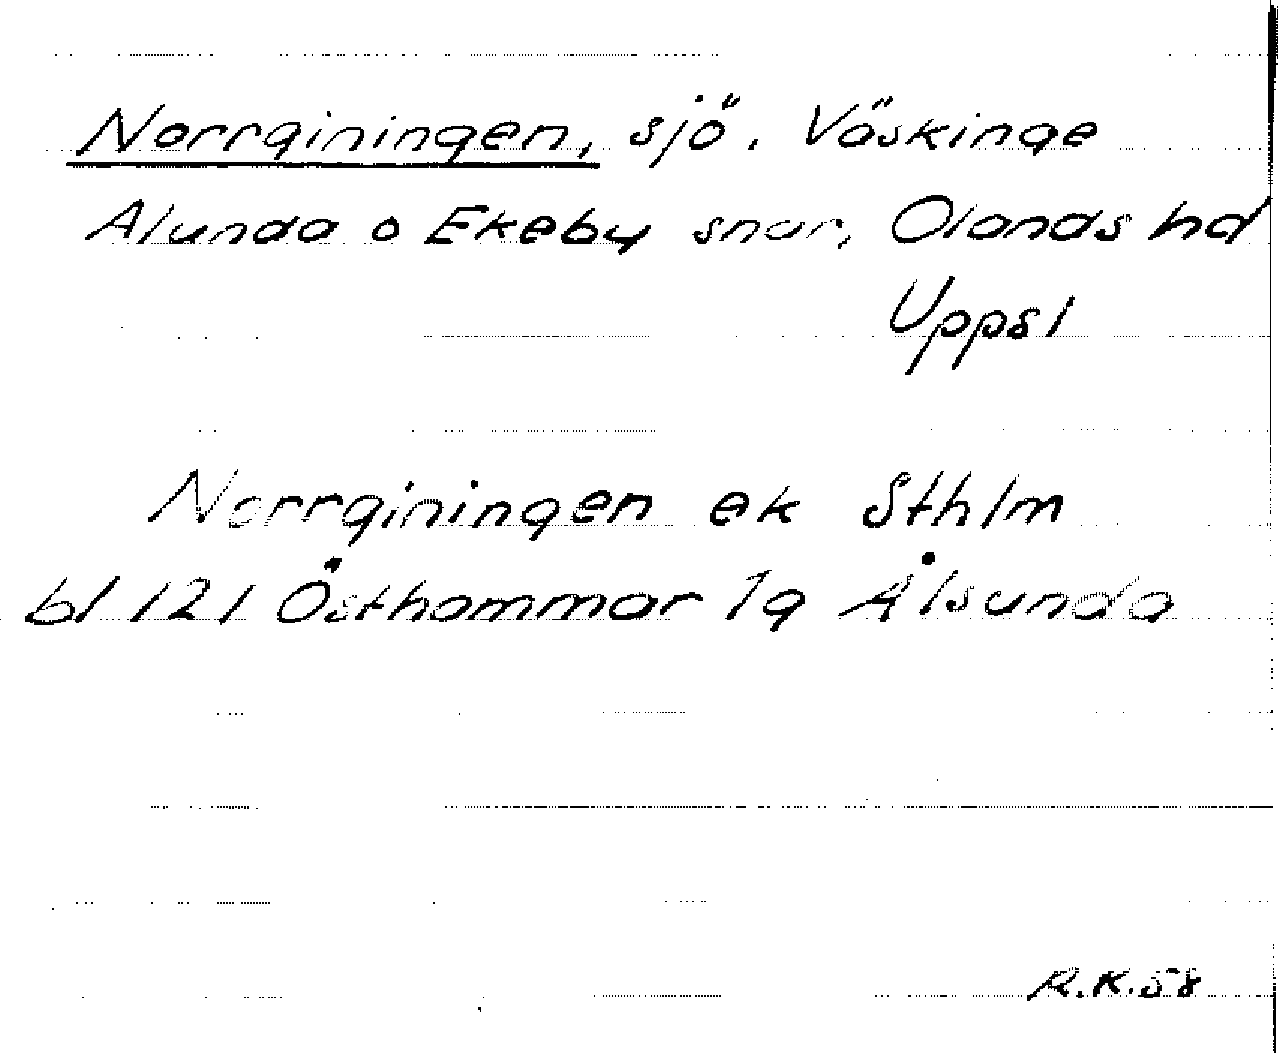 Norrginingen, sjö. Väskinge
Alunda o Ekeby snar, Olands hd
Uppsl
Norrginingen ek Sthlm
bl 121 Östhammar 19 Ålsunda
R.K.58